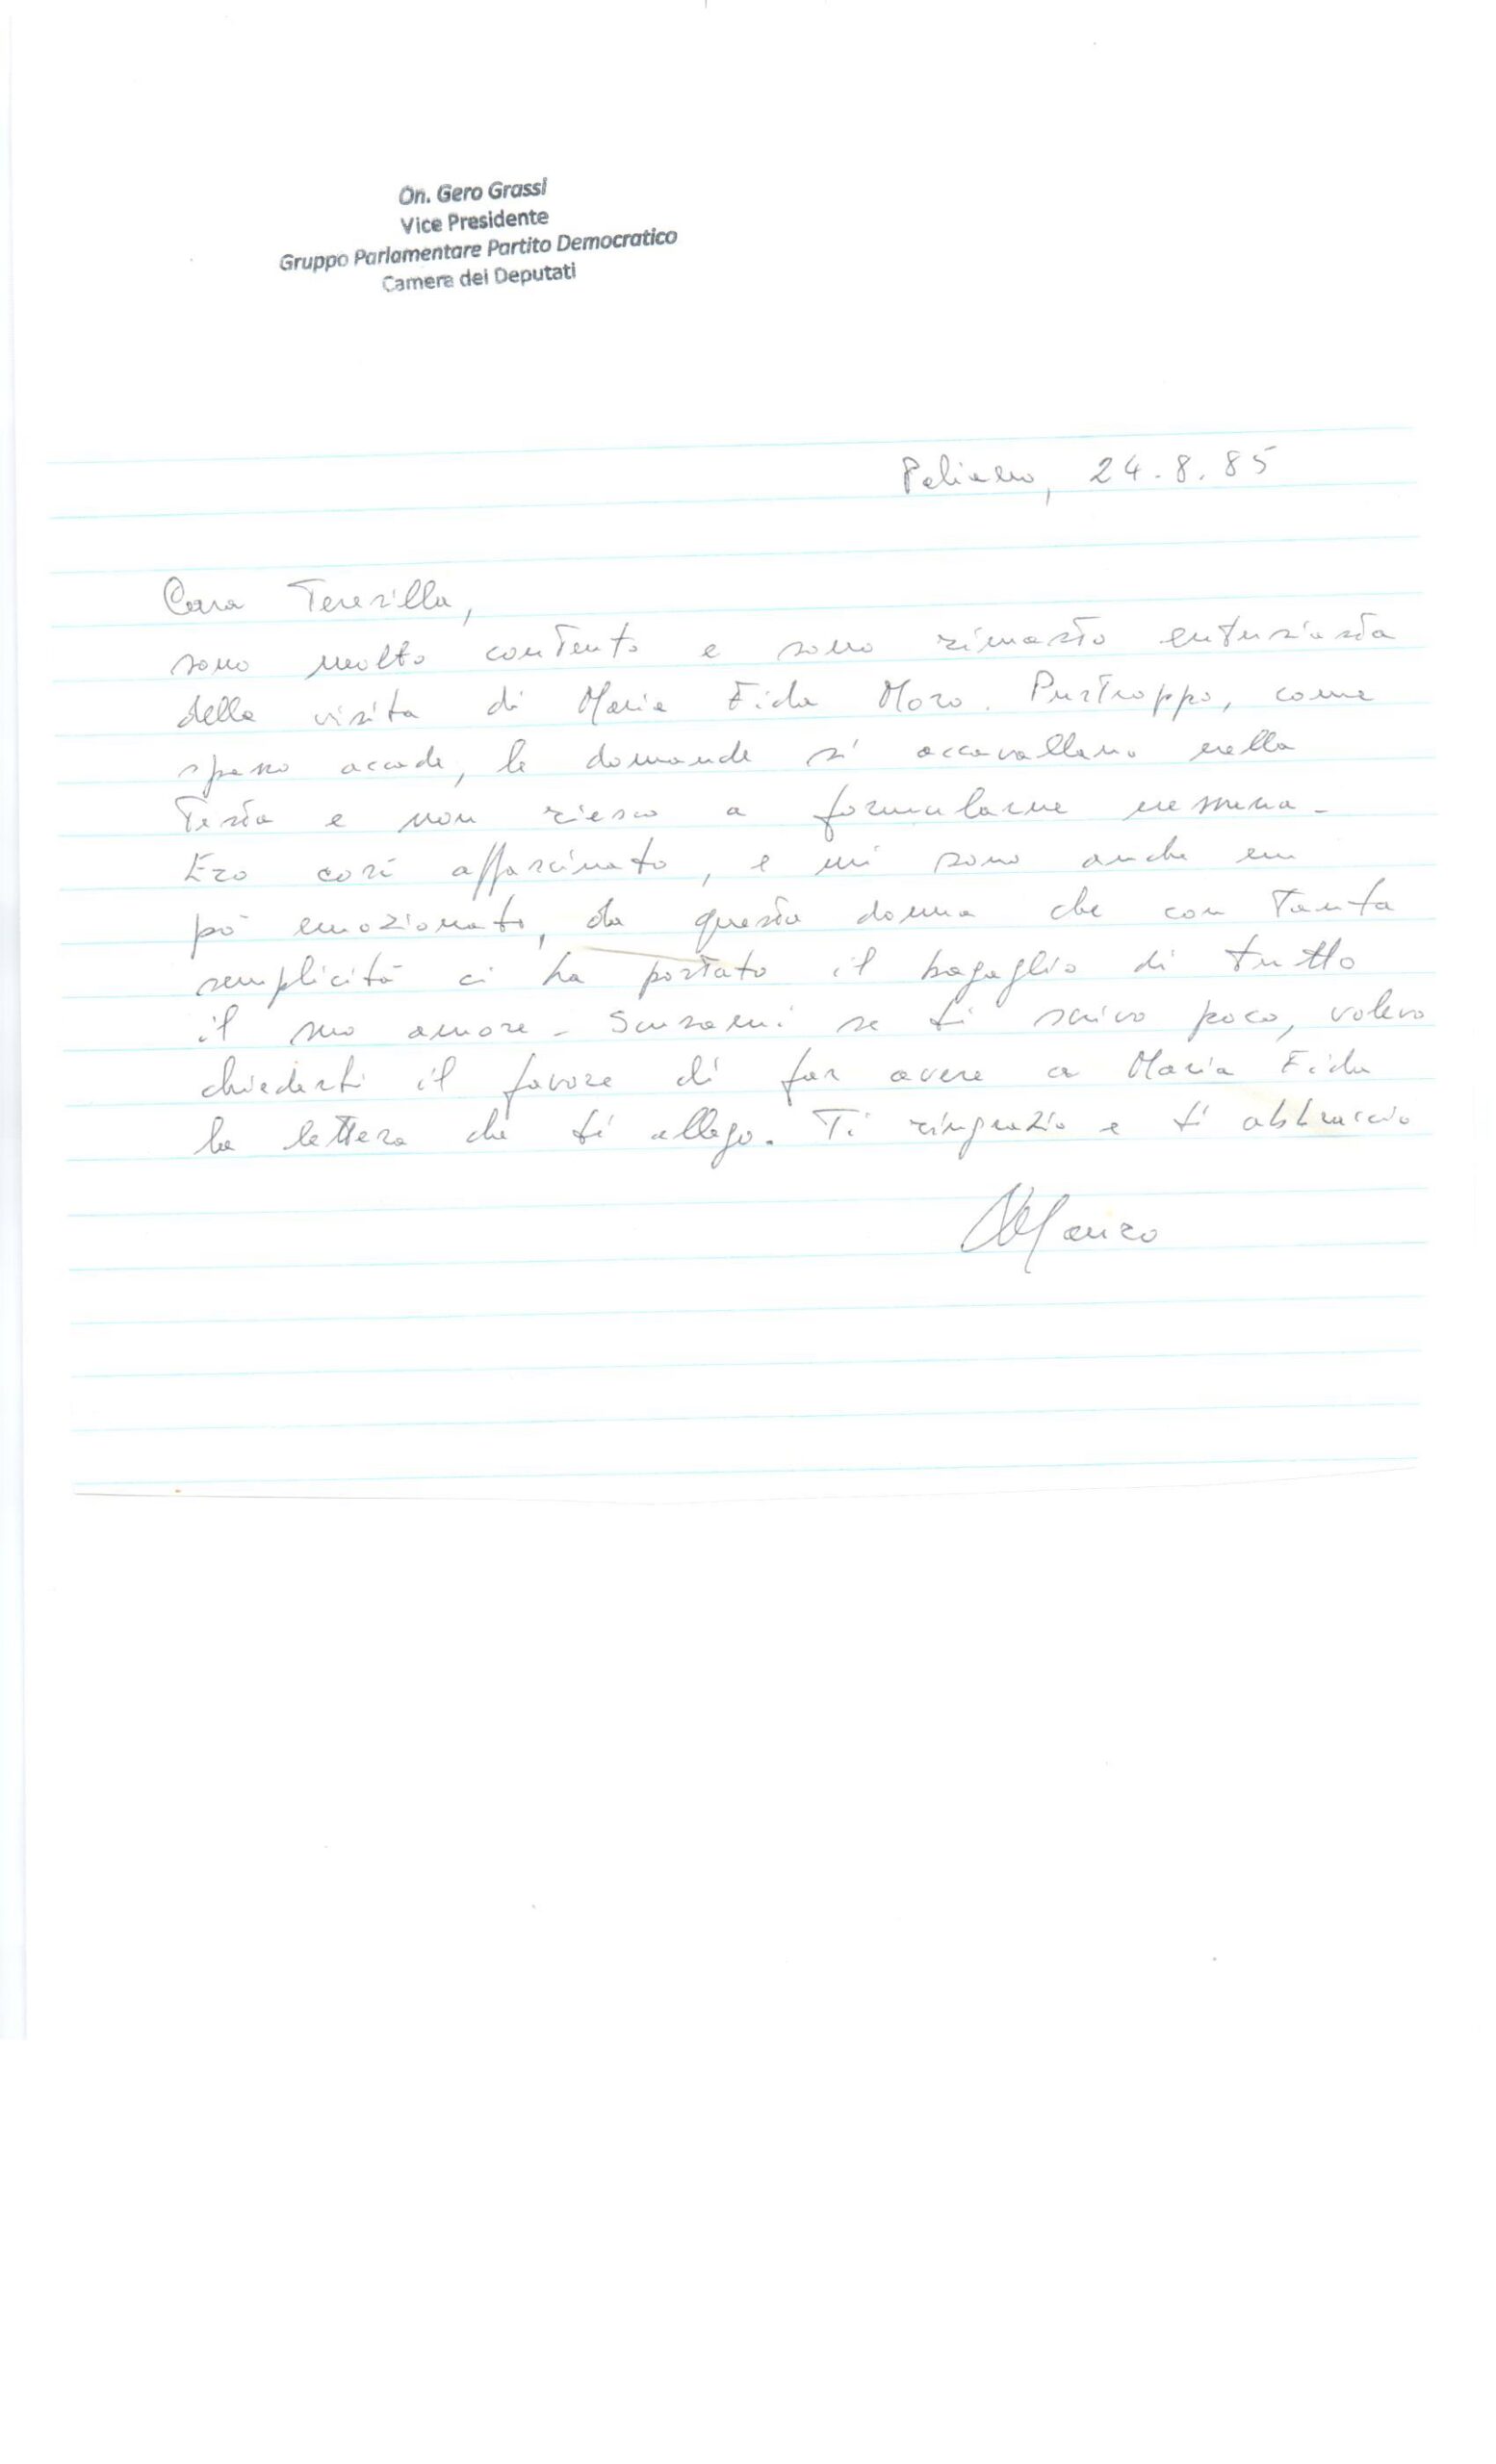 On. Gero Grassi
Vice Presidente
Gruppo Parlamentare Partito Democratico
Camera dei Deputati
Paliano, 24.8.85
Cara Teresilla,
sono molto contento e sono rimasto entusiasta
della visita di Maria Fida Moro. Purtroppo, come
spesso accade, le domande si accavallano nella
Testa e non riesco a formularne nessuna -
Ero così affascinato, e mi sono anche un
pò emozionato, da questa donna che con Tanta
semplicità ci ha portato il bagaglio di tutto
il suo amore - Scusami se ti scrivo poco, volevo
chiederti il favore di far avere a Maria Fida
la lettera che ti allego. Ti ringrazio e ti abbraccio